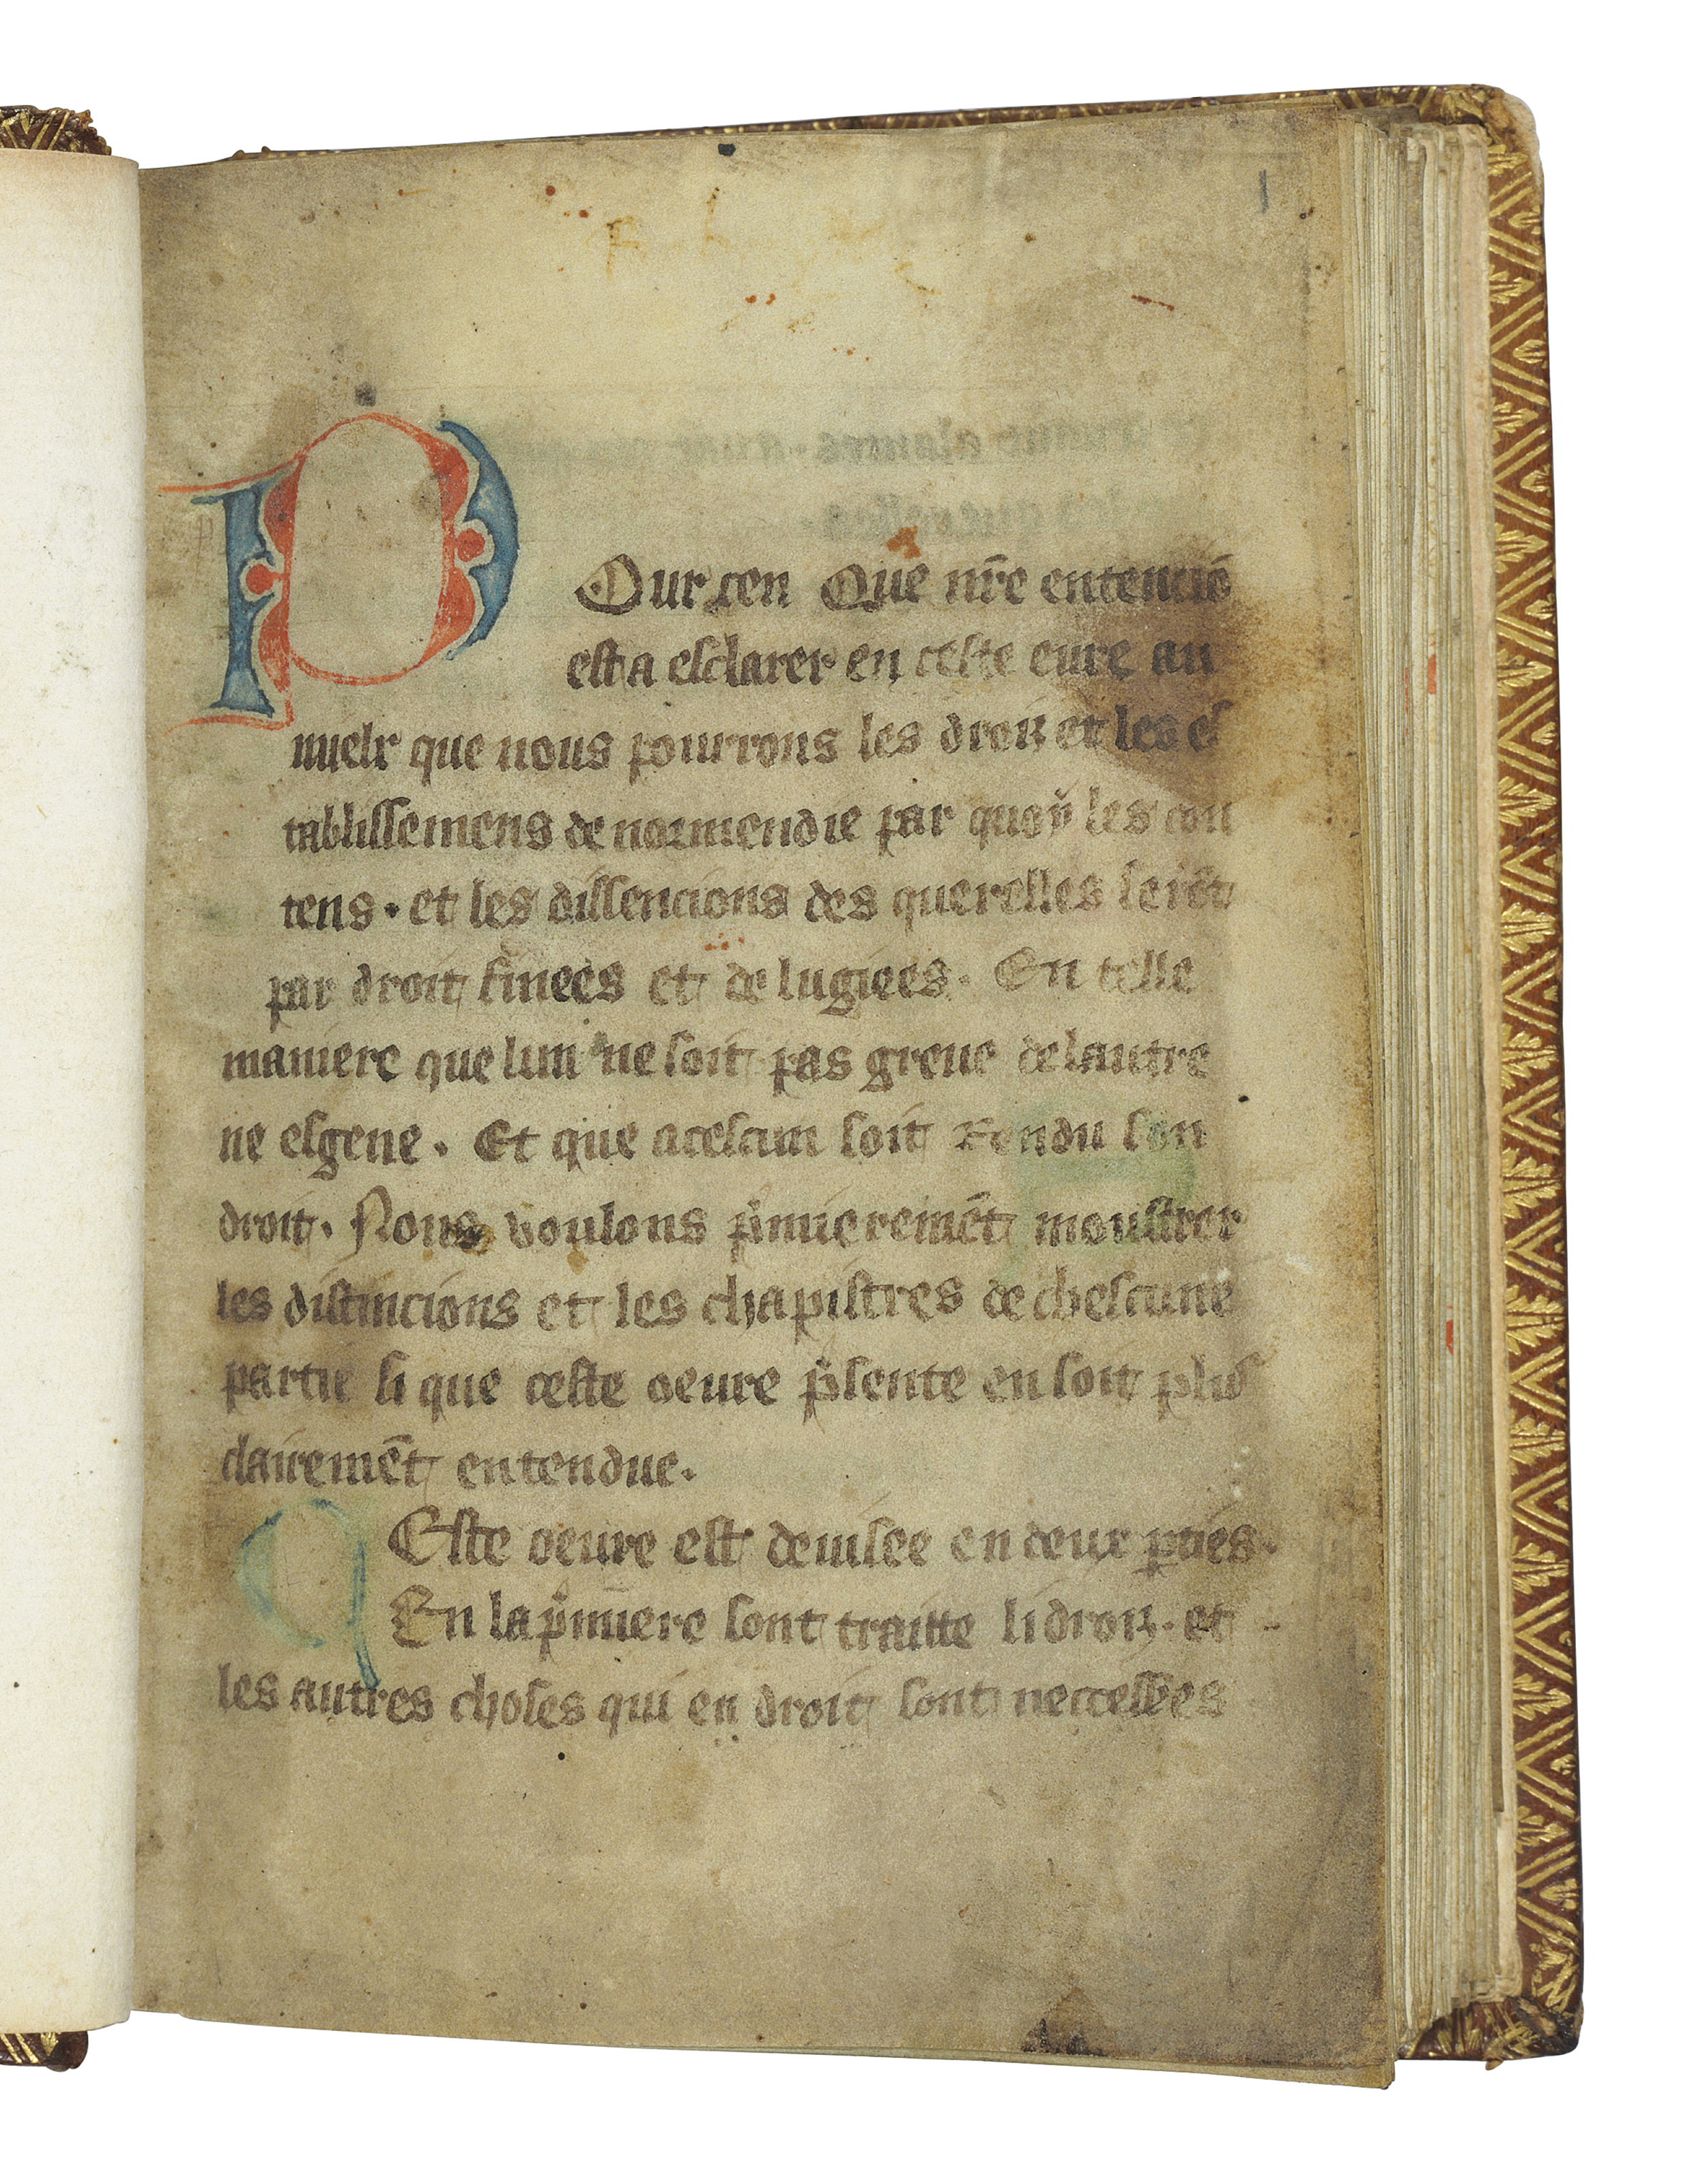 1
POur cen Que nr̄e entenciō
est a esclarer en ceste eure au
muelx que nous pourrons les droiz et les es
tablissemens de normendie par quoy les con
tens · et les dissencions des querelles seiēt
par droit finees et de lugiees · En telle
maniere que lun ne soit pas greue de lautre
ne esgene · Et que a cescun soit Rendu son
droit · Nous voulons p̄mieremēt moustrer
les distincions et les chapistres de chescune
partie si que ceste oeure p̄sente en soit plus
clairemēt entendue ·
CEste oeure est deuisee en deux p̱ties ·
En la p̄miere sont traitte li droiz · et
les autres choses qui en droit sont